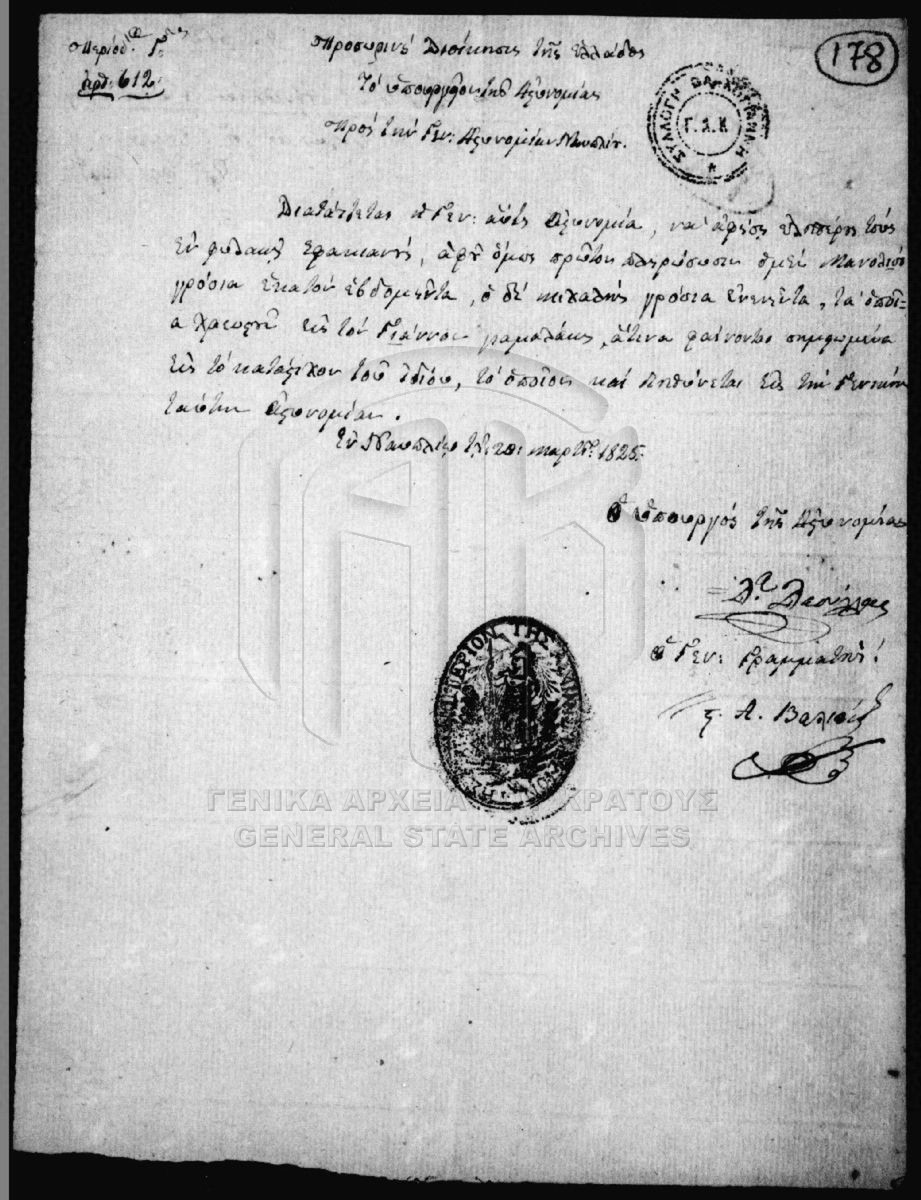 Περίοδ. Γ.
Ἀρθ. 612.
178
Προσωρινὴ Διοίκησις τῆς Ἑλλάδος
Τὸ Ὑπουργεῖον τῆς Ἀστυνομίας
Πρὸς τὴν Γεν: Ἀστυνομίαν Ναυπλίου.
ΣΥΛΛΟΓΗ ΒΛΑΧΟΓΙΑΝΝΗ
Γ.Α.Κ
Διατάττεται ἡ Γεν: αὕτη Ἀστυνομία, νὰ ἀφήσῃ ἐλευθέρους τοὺς
ἐν φυλακῇ Σφακιανούς, ἀφοῦ ὅμως πρῶτον πληρώσωσιν ὁ μὲν Μανόλης
γρόσια ἑκατὸν ἑβδομῆντα, ὁ δὲ Μιχαλης γρόσια ἐνενῆντα, τὰ ὁποῖ-
α χρεωστοῦν εἰς τὸν Γιάννον, ἅτινα φαίνονται σημειωμένα
εἰς τὸ κατάστιχον τοῦ ἰδίου, τὸ ὁποῖον καὶ εἰς τὴν Γενικὴν
ταύτην Ἀστυνομίαν.
Ἐν Ναυπλίῳ τῇ Μαρτίου 1825.
Ὁ Ὑπουργὸς τῆς Ἀστυνομίας
Ὁ Γεν: Γραμματεὺς
ΤΗΣ
ΓΕΝΙΚΑ ΑΡΧΕΙΑ ΤΟΥ ΚΡΑΤΟΥΣ
GENERAL STATE ARCHIVES